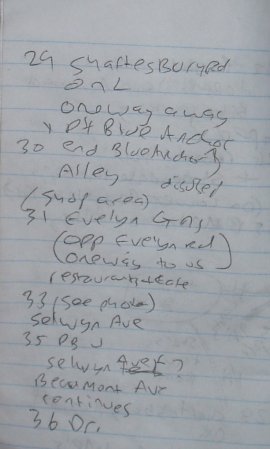 29 Shaftesbury Rd
on L
oneway away
x P4 Blue Anchor
30 end Blue Anchor
Alley disused
(Shop area)
31 Evelyn Gns
(opp Evelyn rd)
(oneway to us)
restaurant
33 (see photo)
selwyn Ave
35 PB
selwyn Ave ?
Beaumont Ave
continues
36 Dr.